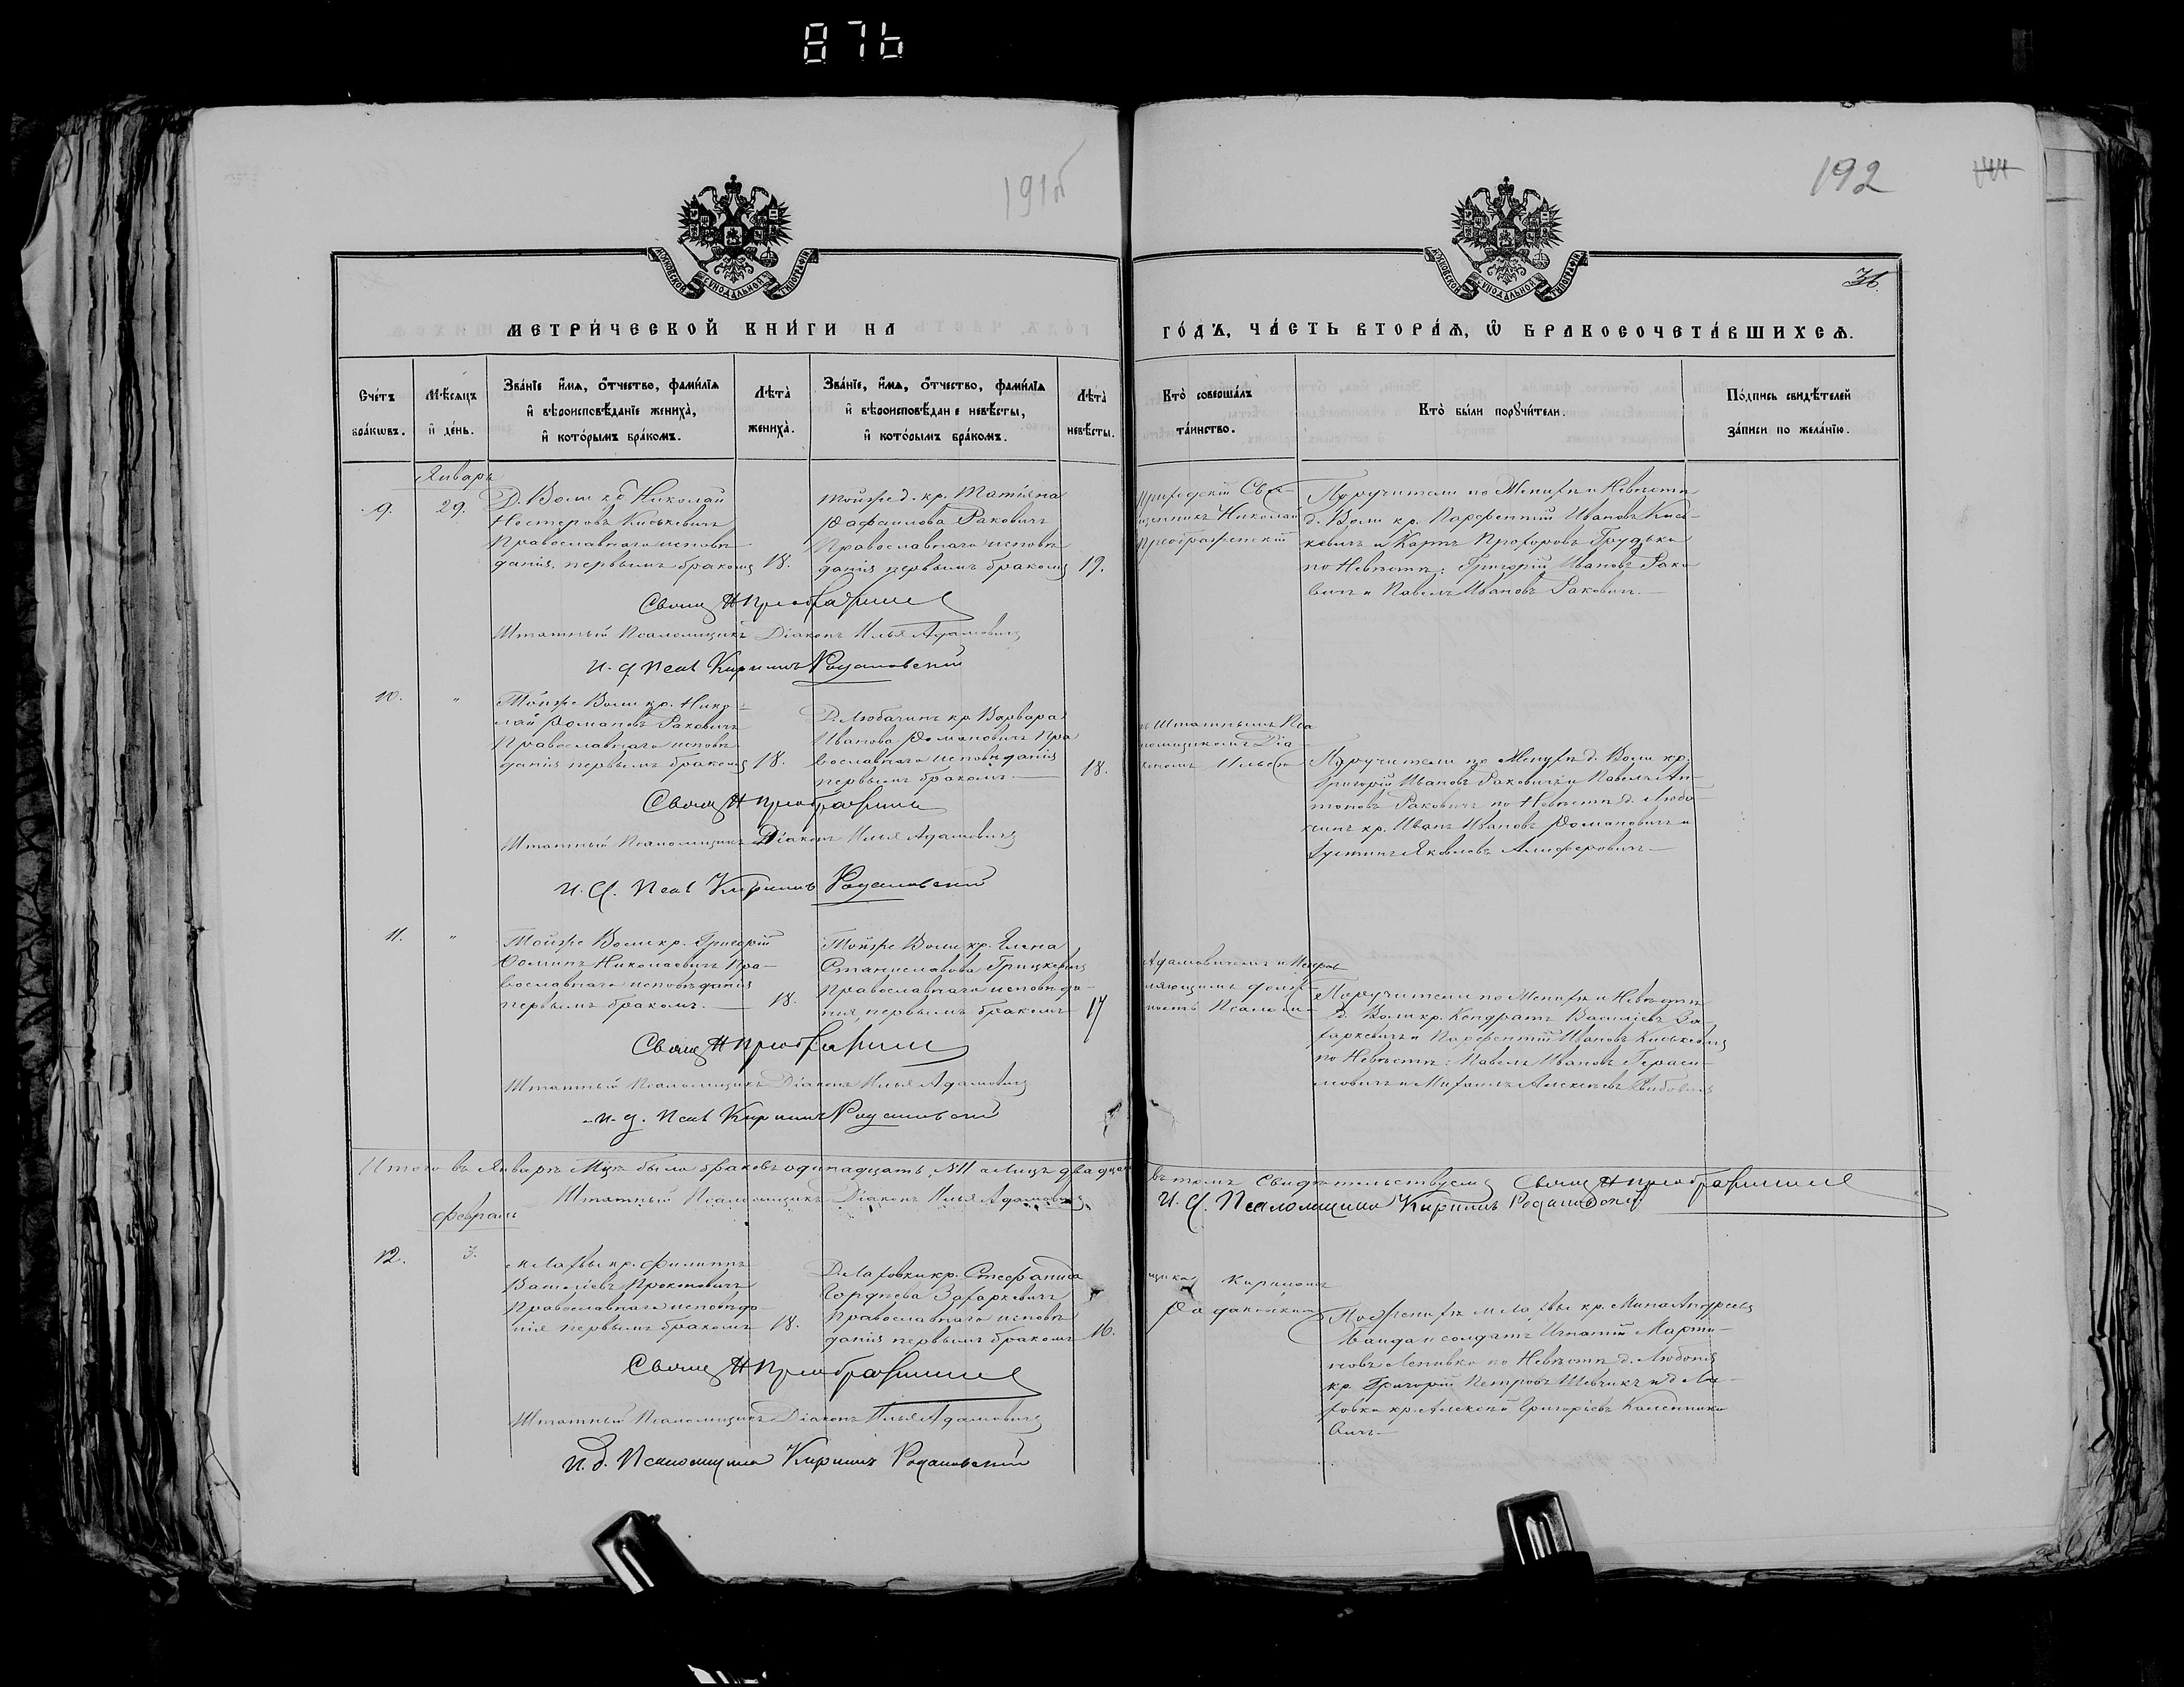 876
191б
192
МОСКОВСКОЙ СѴНОДАЛЬНОЙ ТИПОГРАФІИ
МОСКОВСКОЙ СѴНОДАЛЬНОЙ ТИПОГРАФІИ
36.
МЕТРИ́ЧЕСКОЙ КНИ́ГИ НА
ГО́ДЪ, ЧА́СТЬ ВТОРА́Ѧ, Ѿ БРАКОСОЧЕТА́ВШИХСѦ.
Сче́тъ бра́кωвъ.
Мѣ́сяцъ и҆ де́нь.
Зва́нїе и҆́мѧ, ѻ҆́тчество, фами́лїѧ
и҆ вѣроисповѣ́данїе жениха̀,
и҆ кото́рымъ бра́комъ.
Лѣта̀ жениха̀.
Зва́нїе, и҆́мѧ, ѻ҆́тчество, фами́лїѧ
и҆ вѣроисповѣ́дан е невѣ́сты,
и҆ кото́рымъ бра́комъ.
Лѣта̀ невѣ́сты.
Кто̀ соверша́лъ
та́инство.
Кто̀ бы́ли порꙋчи́тели.
По́дпись свидѣ́телей
за́писи по жела́нїю.
Январь
9. 29.
Д. Воли кр. Николай
Нестеровъ Киськевичъ
Православнаго исповѣ
данія, первымъ бракомъ 18.
Тойже д. кр. Татіяна
Рафаилова Раковичъ
Православнаго исповѣ
данія первымъ бракомъ 19.
Приходскій Свя-
щенникъ Николай
Преображенскій
Поручители по Женихѣ и Невѣстѣ
д. Воли кр. Парфентій Ивановъ Кись-
кевичъ и Карпъ Прохоровъ Грудько
по Невѣстѣ: Григорій Ивановъ Рако
вичъ и Павелъ Ивановъ Раковичъ.
Свящ Н Преображенскій
Штатный Псаломщикъ Діаконъ Илья Адамовичъ
И. д. Псал Кириллъ Родаковскій
10. "
Тойже Воли кр. Нико-
лай Романовъ Раковичъ
Православнаго исповѣ
данія первымъ бракомъ 18.
Д. Любачинъ кр. Варвара
Иванова Романовичъ Пра
вославнаго исповѣданія
первымъ бракомъ. 18.
съ Штатнымъ Пса
ломщикомъ Діа-
кономъ Ильею
Поручители по Женихѣ д. Воли кр.
Григорій Ивановъ Раковичъ и Павелъ Ан-
тоновъ Раковичъ по Невѣстѣ д. Люба
чинъ кр. Иванъ Ивановъ Романовичъ и
Іустинъ Яковлевъ Алиферовичъ
Свящ Н Преображенскій
Штатный Псаломщикъ Діаконъ Илья Адамовичъ
И. д. Псал Кириллъ Родаковскій
11. "
Тойже Воли кр. Григорій
Ѳоминъ Николаевичъ Пра-
вославнаго исповѣданія
первымъ бракомъ. 18.
Тойже Воли кр. Елена
Станиславова Грицкевичъ
Православнаго исповѣда-
нія, первымъ бракомъ 17
Адамовичемъ и Исправ
ляющимъ долж-
ность Псалом-
Поручители по Женихѣ и Невѣстѣ
д. Воли кр. Кондратъ Василіевъ За-
харкевичъ и Парфентій Ивановъ Киськевичъ
по Невѣстѣ: Павелъ Ивановъ Гераси-
мовичъ и Михаилъ Алексѣевъ
Свящ Н Преображенскій
Штатный Псаломщикъ Діаконъ Илья Адамовичъ
И. д. Псал Кириллъ Родаковскій
Итого въ Январѣ Мцѣ было браковъ одинадцать, №11 а лицъ двадцат
въ томъ Свидѣтельствуемъ Свящ Н Преображенскій
Штатный Псаломщикъ Діаконъ Илья Адамовичъ
И. д. Псаломщика Кириллъ Родаковскій
Февраль
12. 3.
м Лахвы кр. Филиппъ
Василіевъ Прокоповичъ
Православнаго исповѣда-
нія первымъ бракомъ 18.
Д. Лаховки кр. Стефанида
Гордѣева Захаркевичъ
Православнаго исповѣ
данія первымъ бракомъ 16.
щика Кирилломъ
Родаковскимъ
По Женихѣ м Лахвы кр. Мина Андреевъ
Банда и солдатъ Игнатій Марти-
новъ Лепивко по Невѣстѣ д. Любоня
кр. Григорій Петровъ Шевчикъ и д Ла-
ховка кр. Алексѣй Григорьевъ Каленнико
вичъ
Свящ Н Преображенскій
Штатный Псаломщикъ Діаконъ Илья Адамовичъ
И. д. Псаломщика Кириллъ Родаковскій